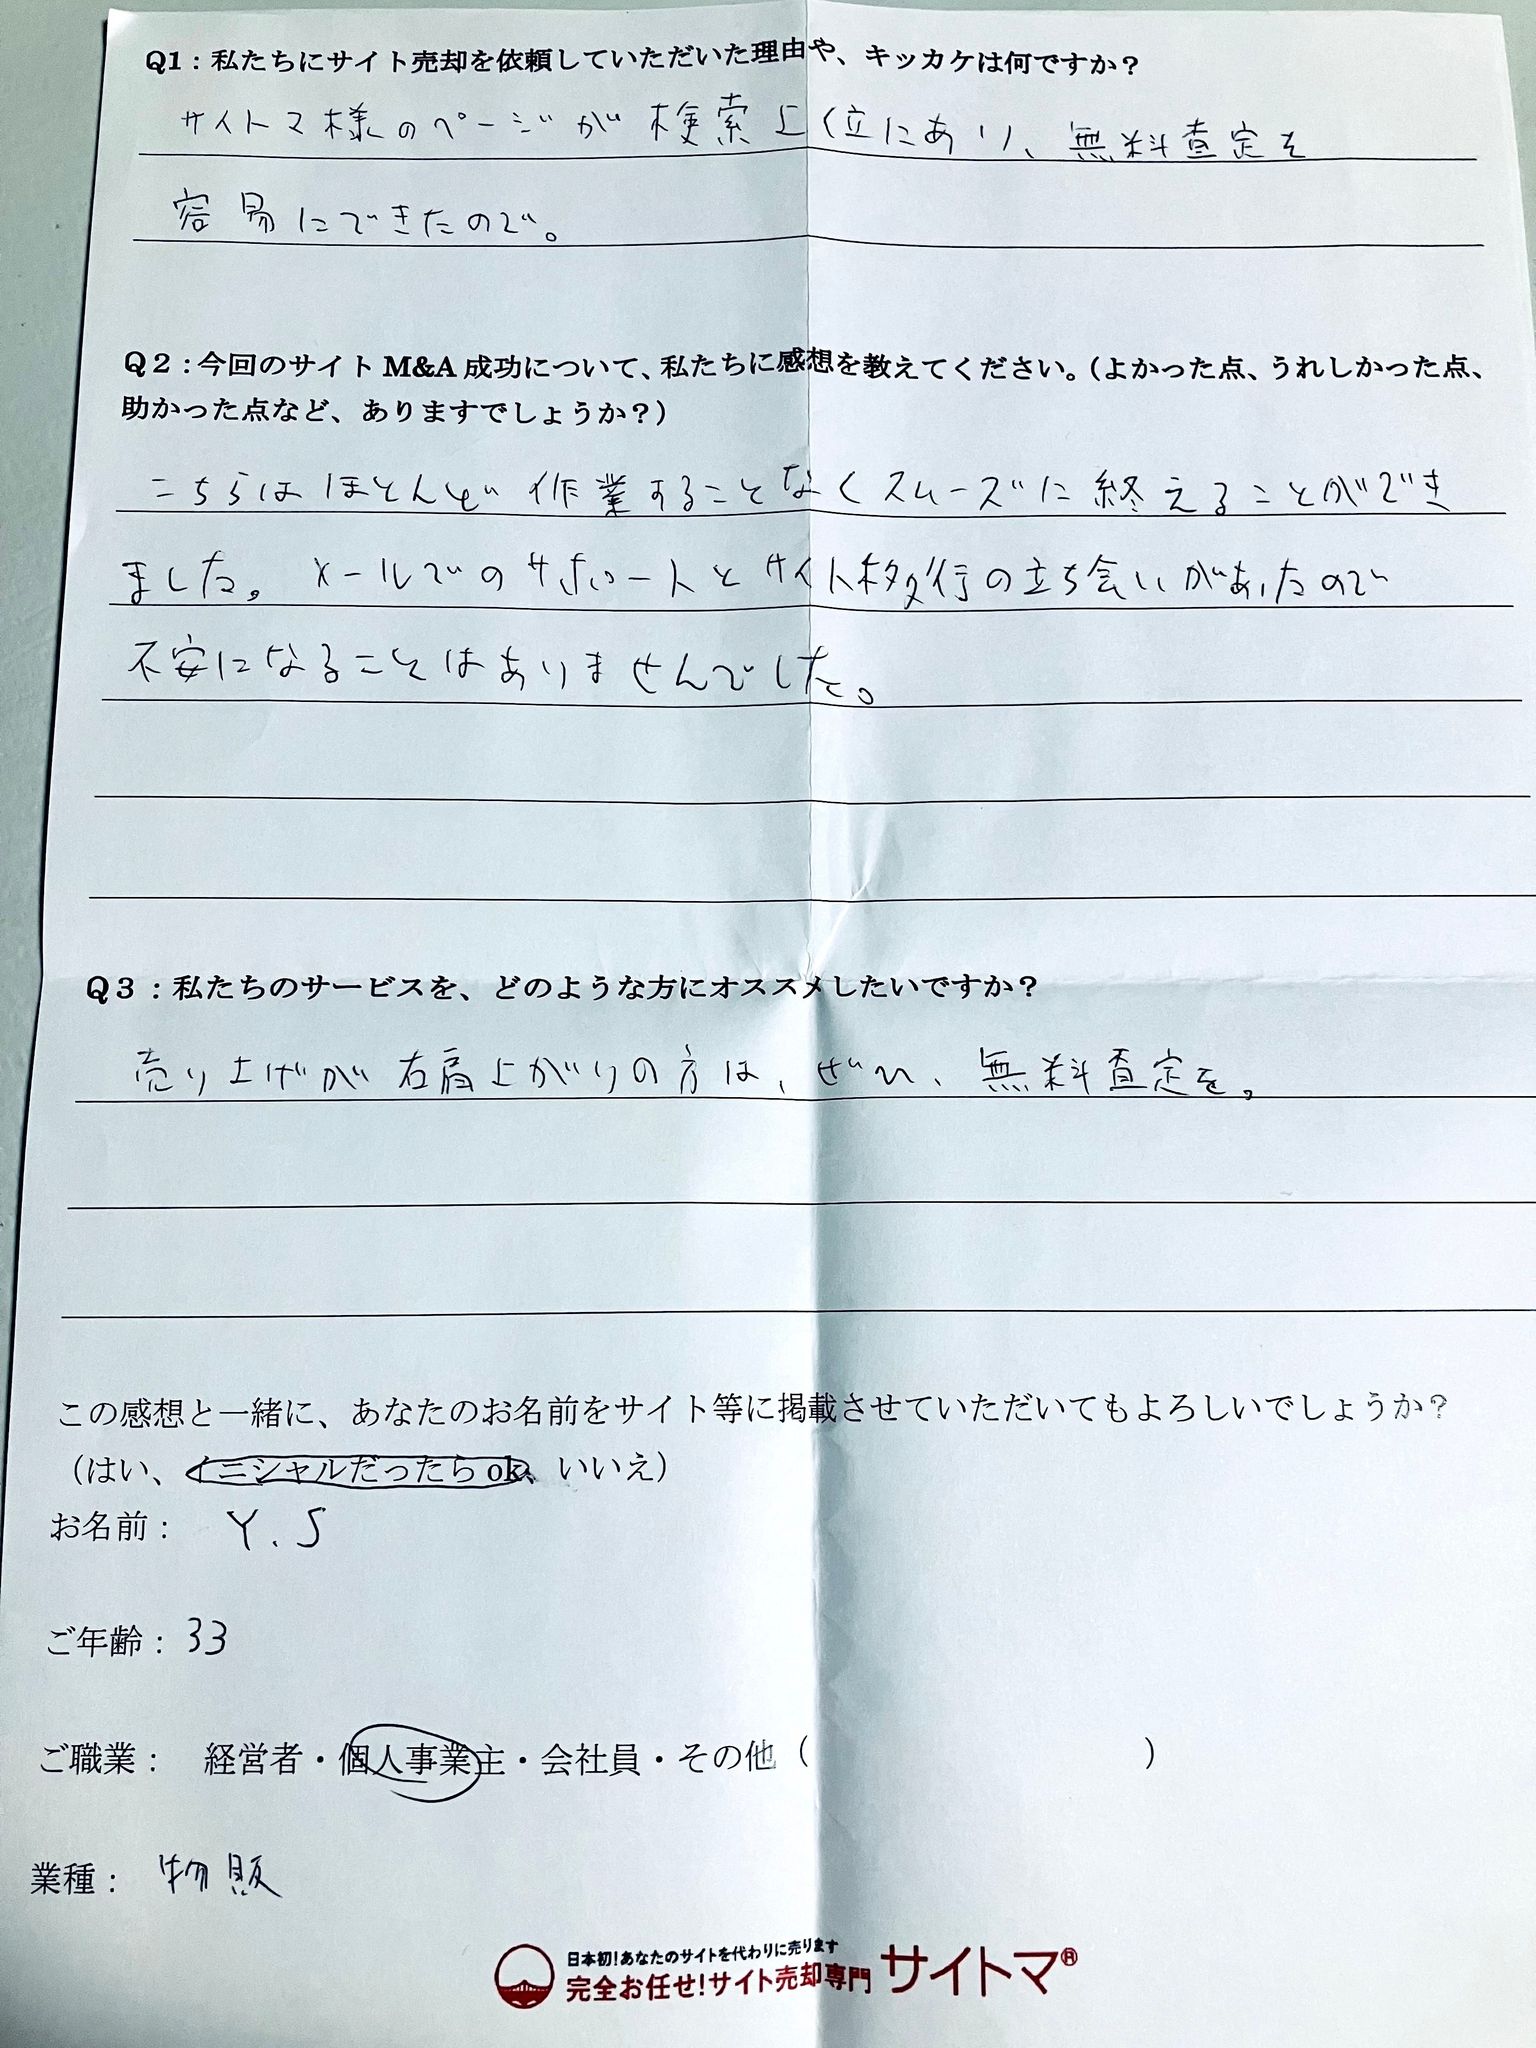 Q1：私たちにサイト売却を依頼していただいた理由や、キッカケは何ですか？
サイトマ様のページが検索上位にあり、無料査定を
容易にできたので。
Q２：今回のサイト M&A 成功について、私たちに感想を教えてください。（よかった点、うれしかった点、
助かった点など、ありますでしょうか？）
こちらはほとんど作業することなくスムーズに終えることができ
ました。メールでのサポートとサイト移行の立ち会いがあったので
不安になることはありませんでした。
Q３：私たちのサービスを、どのような方にオススメしたいですか？
売り上げが右肩上がりの方は、ぜひ、無料査定を。
この感想と一緒に、あなたのお名前をサイト等に掲載させていただいてもよろしいでしょうか？
（はい、イニシャルだったら ok、いいえ）
お名前： Y.S
ご年齢：33
ご職業： 経営者・個人事業主・会社員・その他（ ）
業種： 物販
日本初！あなたのサイトを代わりに売ります
完全お任せ！サイト売却専門 サイトマ®